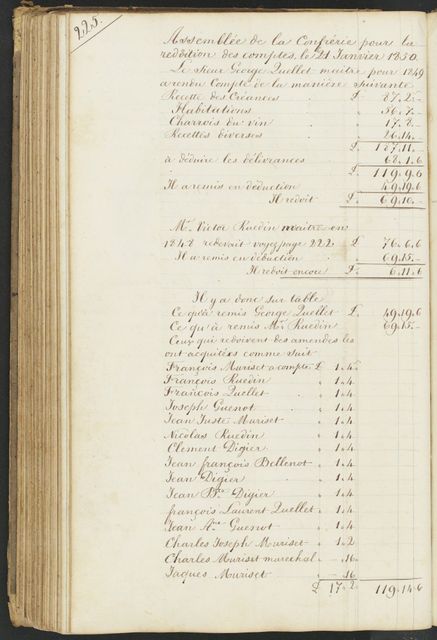 225.
Assemblée de la Confrérie pour la
reddition des comptes, le 21 Janvier 1850.
Le sieur George Quellet maitre pour 1849
a rendu Compte de la manière suivante
Recette des Créances £. 87.2.-
Habitations 56.7.-
Charrois du vin 17.8.-
Recettes diverses 26.14.-
£. 187.11.-
à déduire les délivrances 68.1.6
£. 119.9.6
Il a remis en déduction 49.19.6
Il redoit £. 69.10.-
Mr. Victor Ruedin maitre en
1848 redevait voyez page 222. £. 76.6.6
Il a remis en déduction 69.15.-
Il redoit encore £. 6.11.6
Il y a donc sur table
Ce qu'a remis George Quellet £. 49.19.6
Ce qu'a remis Mr. Ruedin 69.15.-
Ceux qui redoivent des amendes les
ont acquitées comme suit
François Muriset a compte £. 1.4.
François Ruedin 1.4
François Quellet 1.4
Joseph Guenot 1.4
Jean Juste Muriset 1.4
Nicolas Ruedin 1.4
Clement Digier 1.4
Jean françois Bellenot 1.4
Jean Digier 1.4
Jean Bte Digier 1.4
françois Laurent Quellet 1.4
Jean Ane Guenot 1.4
Charles Joseph Muriset 1.2
Charles Muriset marechal -.16
Jaques Muriset -.16
£ 17.2. 119.14.6